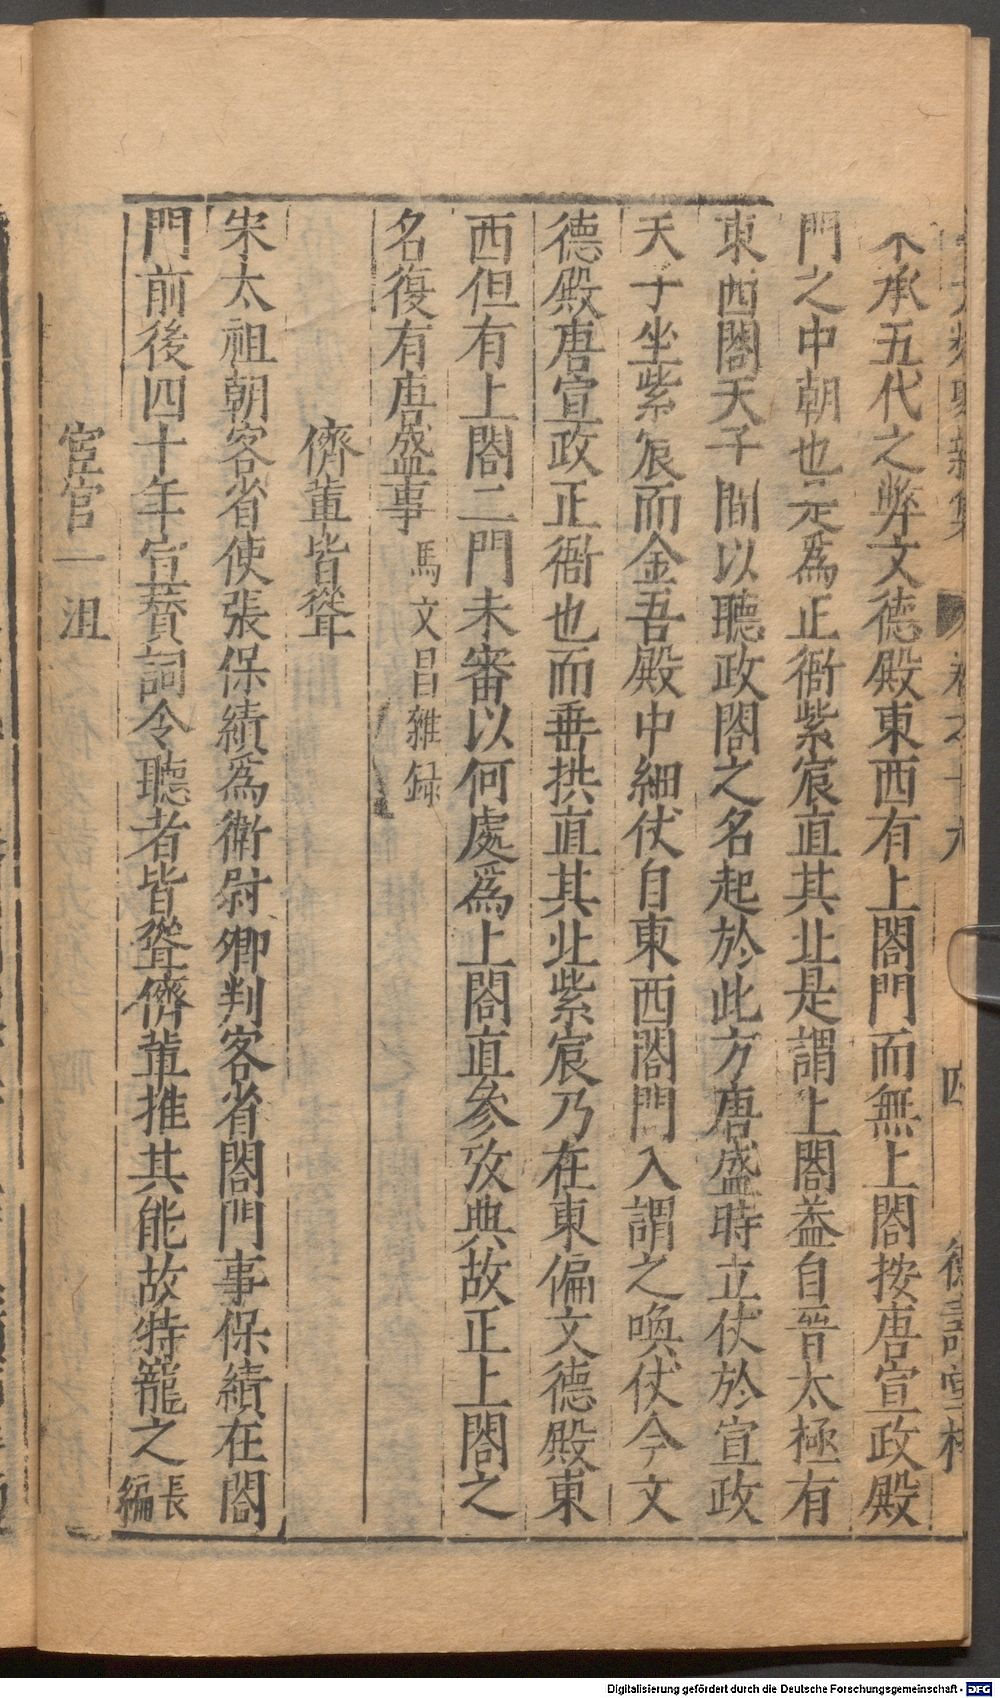 承五代之弊文德殿東西有上閤門而無上閤按唐宣政殿
門之中朝也是爲正衙紫宸直其北是謂上閤蓋自晉太極有
東西閤天子間以聽政閤之名起於此方唐盛時立仗於宣政
天子坐紫宸而金吾殿中細仗自東西閤門入謂之喚仗今文
德殿唐宣政正衙也而垂拱直其北紫宸乃在東偏文德殿東
西但有上閤二門未審以何處爲上閤直參攷典故正上閤之
名復有唐盛事 馬文昌雜録
儕軰皆聳
宋太祖朝客省使張保績爲衛尉卿判客省閤門事保績在閤
門前後四十年宣賛詞令聽者皆聳儕軰推其能故特寵之 長編
宦官一
四
德壽堂梓
Digitalisierung gefördert durch die Deutsche Forschungsgemeinschaft - DFG